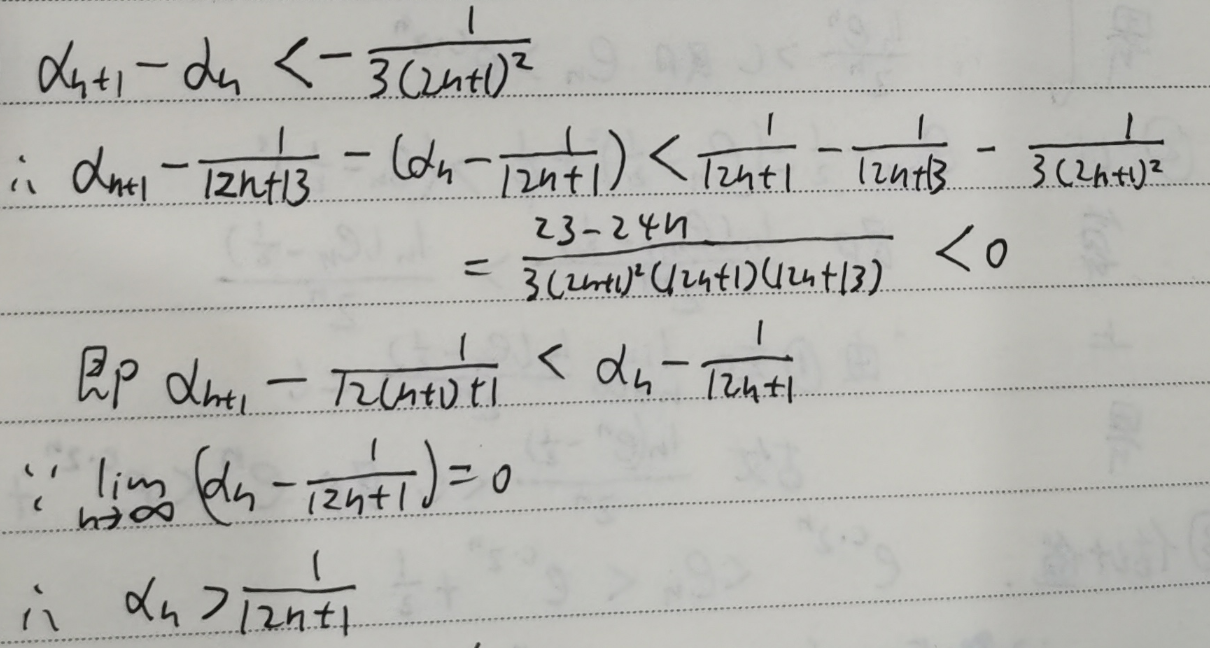 αₙ₊₁ - αₙ < - 1/(3(2n+1)²)
∴ αₙ₊₁ - 1/(12n+13) - (αₙ - 1/(12n+1)) < 1/(12n+1) - 1/(12n+13) - 1/(3(2n+1)²)
= (23-24n)/(3(2n+1)²(12n+1)(12n+13)) < 0
即 αₙ₊₁ - 1/(12(n+1)+1) < αₙ - 1/(12n+1)
∵ lim_{n→∞} (αₙ - 1/(12n+1)) = 0
∴ αₙ > 1/(12n+1)